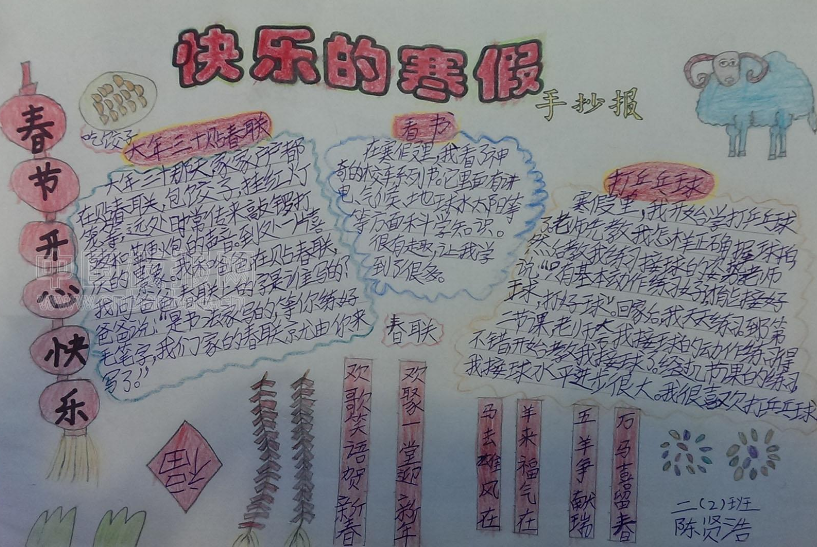 快乐的寒假
手抄报
春节开心快乐
吃饺子
大年三十贴春联
大年三十那天家家户户都
在贴春联,包饺子,挂红灯
笼等,远处时常传来敲锣打
鼓和鞭炮的声音,到处一片喜
庆的景象。我和爸爸在贴春联,
我问爸爸春联上的字是谁写的?
爸爸说:“是书法家写的,等你练好
毛笔字,我们家的春联就由你来
写了。”
看书
在寒假里,我看了神
奇的校车系列书,它里面有讲
电、气候、地球、水、太阳等
等方面科学知识。
很有趣,让我学
到了很多。
打乒乓球
寒假里,我开始学打乒乓球
老师先教我怎样正确握球拍
然后教我练习接球的姿势。老师
说:“只有基本动作练好了,才能接好
球,打好球”。回家后我天天练习,到第
二节课老师看我接球的动作练得
不错开始教我接球了。经过几节课的练习
我接球水平进步很大。我很喜欢打乒乓球
春联
欢歌笑语贺新春
欢聚一堂迎新年
马去雄风在
羊来福气在
五羊争献瑞
万马喜留春
福
二(2)班
陈贤浩